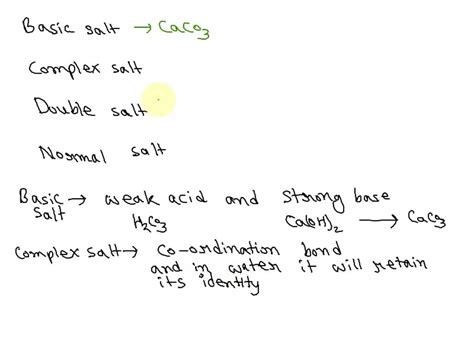 Basic salt → CaCO3
Complex salt
Double salt
Normal salt
Basic salt → weak acid and strong base
H2CO3 Ca(OH)2 → CaCO3
Complex salt → Co-ordination bond
and in water it will retain
its identity